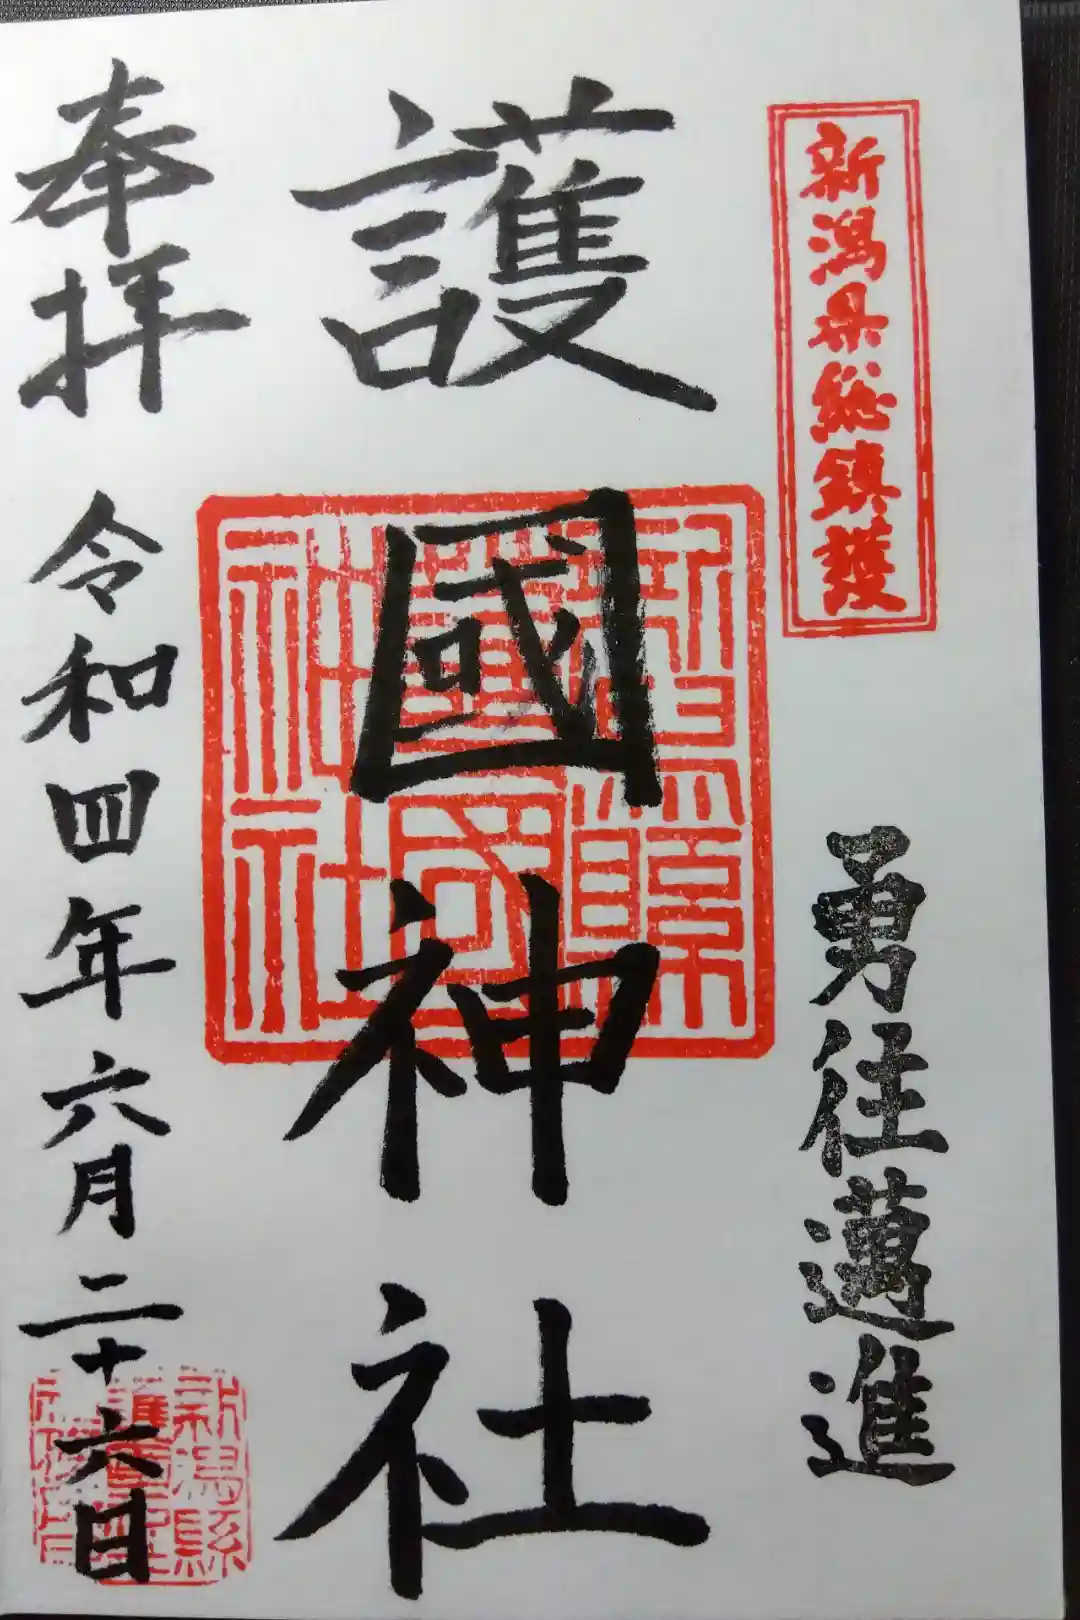 新潟県総鎮護
勇往邁進
護國神社
新潟縣
護國神
社
奉拝
令和四年六月二十六日
新潟縣